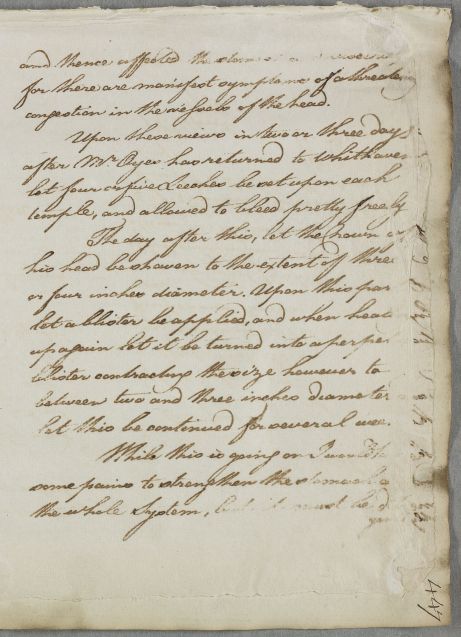 and thence affected the
for there are manifest symptoms of a threatening
congestion in the vessels of the head.
Upon these views in two or three days
after Mr Dyer has returned to Whithaven
let four or five Leaches be set upon each
temple, and allowed to bleed pretty freely
The day after this, let the hown
his head be shaven to the extent of three
or four inches diameter. Upon this par
let a blister be applied, and when heal
up again let it be turned into a perpe
blister contracting the size however to
between two and three inches diameter
let this be continued for several wee
While this is going on I would
some pains to strengthen the stomach
the whole System, but it must be d